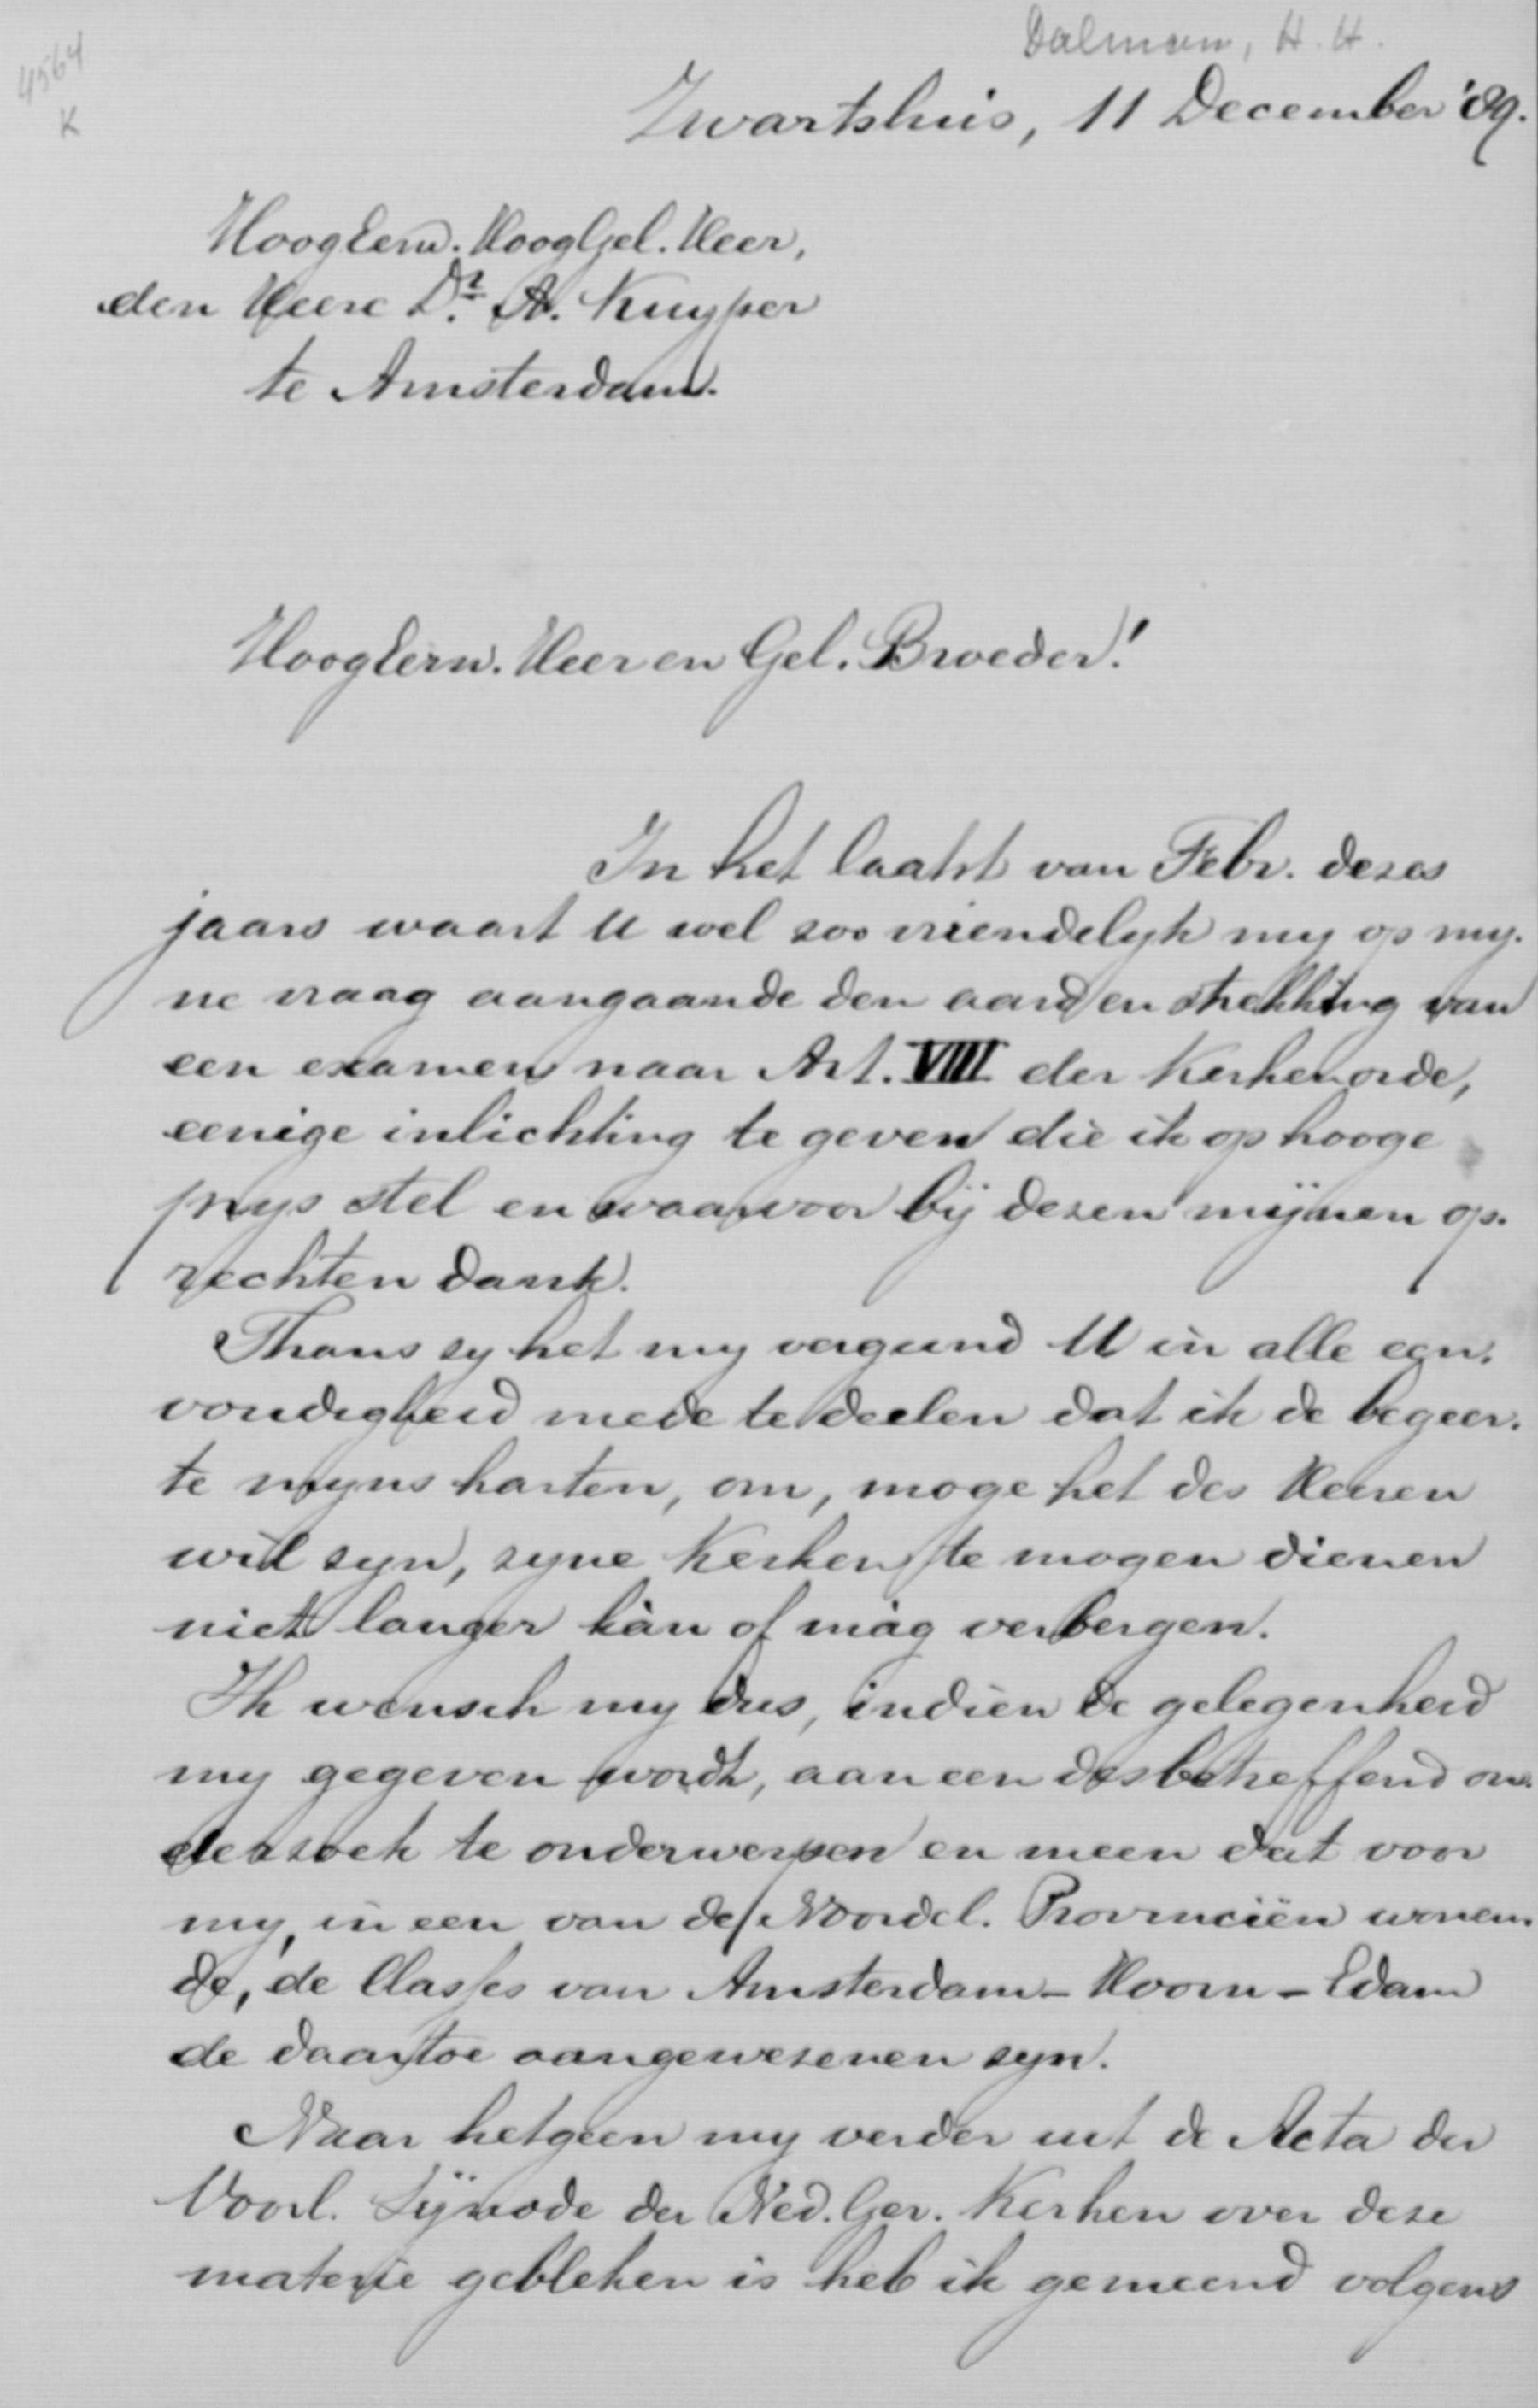 Dalman, H. H.
4564
K
Zwartsluis, 11 December '89.
HoogEerw. HoogGel. Heer,
den Heere Dr. A. Kuyper
te Amsterdam.
HoogEerw. Heer en Gel. Broeder!
In het laatst van Febr. dezes
jaars waart U wel zoo vriendelyk my op my-
ne vraag aangaande den aard en strekking van
een examen naar Art. VIII der Kerkenorde,
eenige inlichting te geven die ik op hooge
prys stel en waarvoor bij dezen mijnen op-
rechten dank.
Thans zy het my vergund U in alle een-
voudigheid mede te deelen dat ik de begeer-
te myns harten, om, moge het des Heeren
wil zyn, zyne Kerken te mogen dienen
niet langer kàn of màg verbergen.
Ik wensch my dus, indien de gelegenheid
my gegeven wordt, aan een desbetreffend on-
derzoek te onderwerpen en meen dat voor
my, in een van de Noordel. Provinciën wonen-
de, de Classes van Amsterdam - Hoorn - Edam
de daartoe aangewezenen zyn.
Naar hetgeen my verder uit de Acta der
Voorl. Sÿnode der Ned. Ger. Kerken over deze
materie gebleken is heb ik gemeend volgens